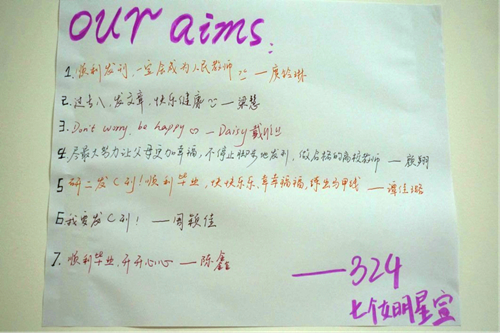 our aims:
1. 顺利发刊,一定会成为人民教师 — 庹
2. 过去八,发文章,快乐健康 — 梁慧
3. Don't worry, be happy — Daisy 戴
4. 尽最大努力让父母更加幸福,不停止地发刊,做名格的高校教师 — 顾翔
5. 研二发C刊!顺利毕业,快快乐乐,幸幸福福,练出马甲线 — 谭佳璐
6. 我要发C刊! — 周颖佳
7. 顺利毕业,开开心心 — 陈鑫
——324
七个女明星宣